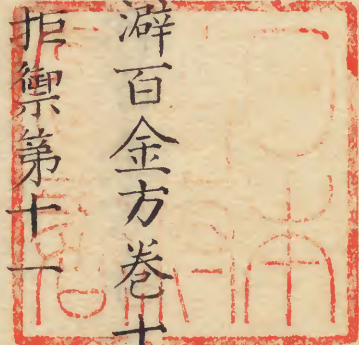 澼百金方卷十
拒禦第十一